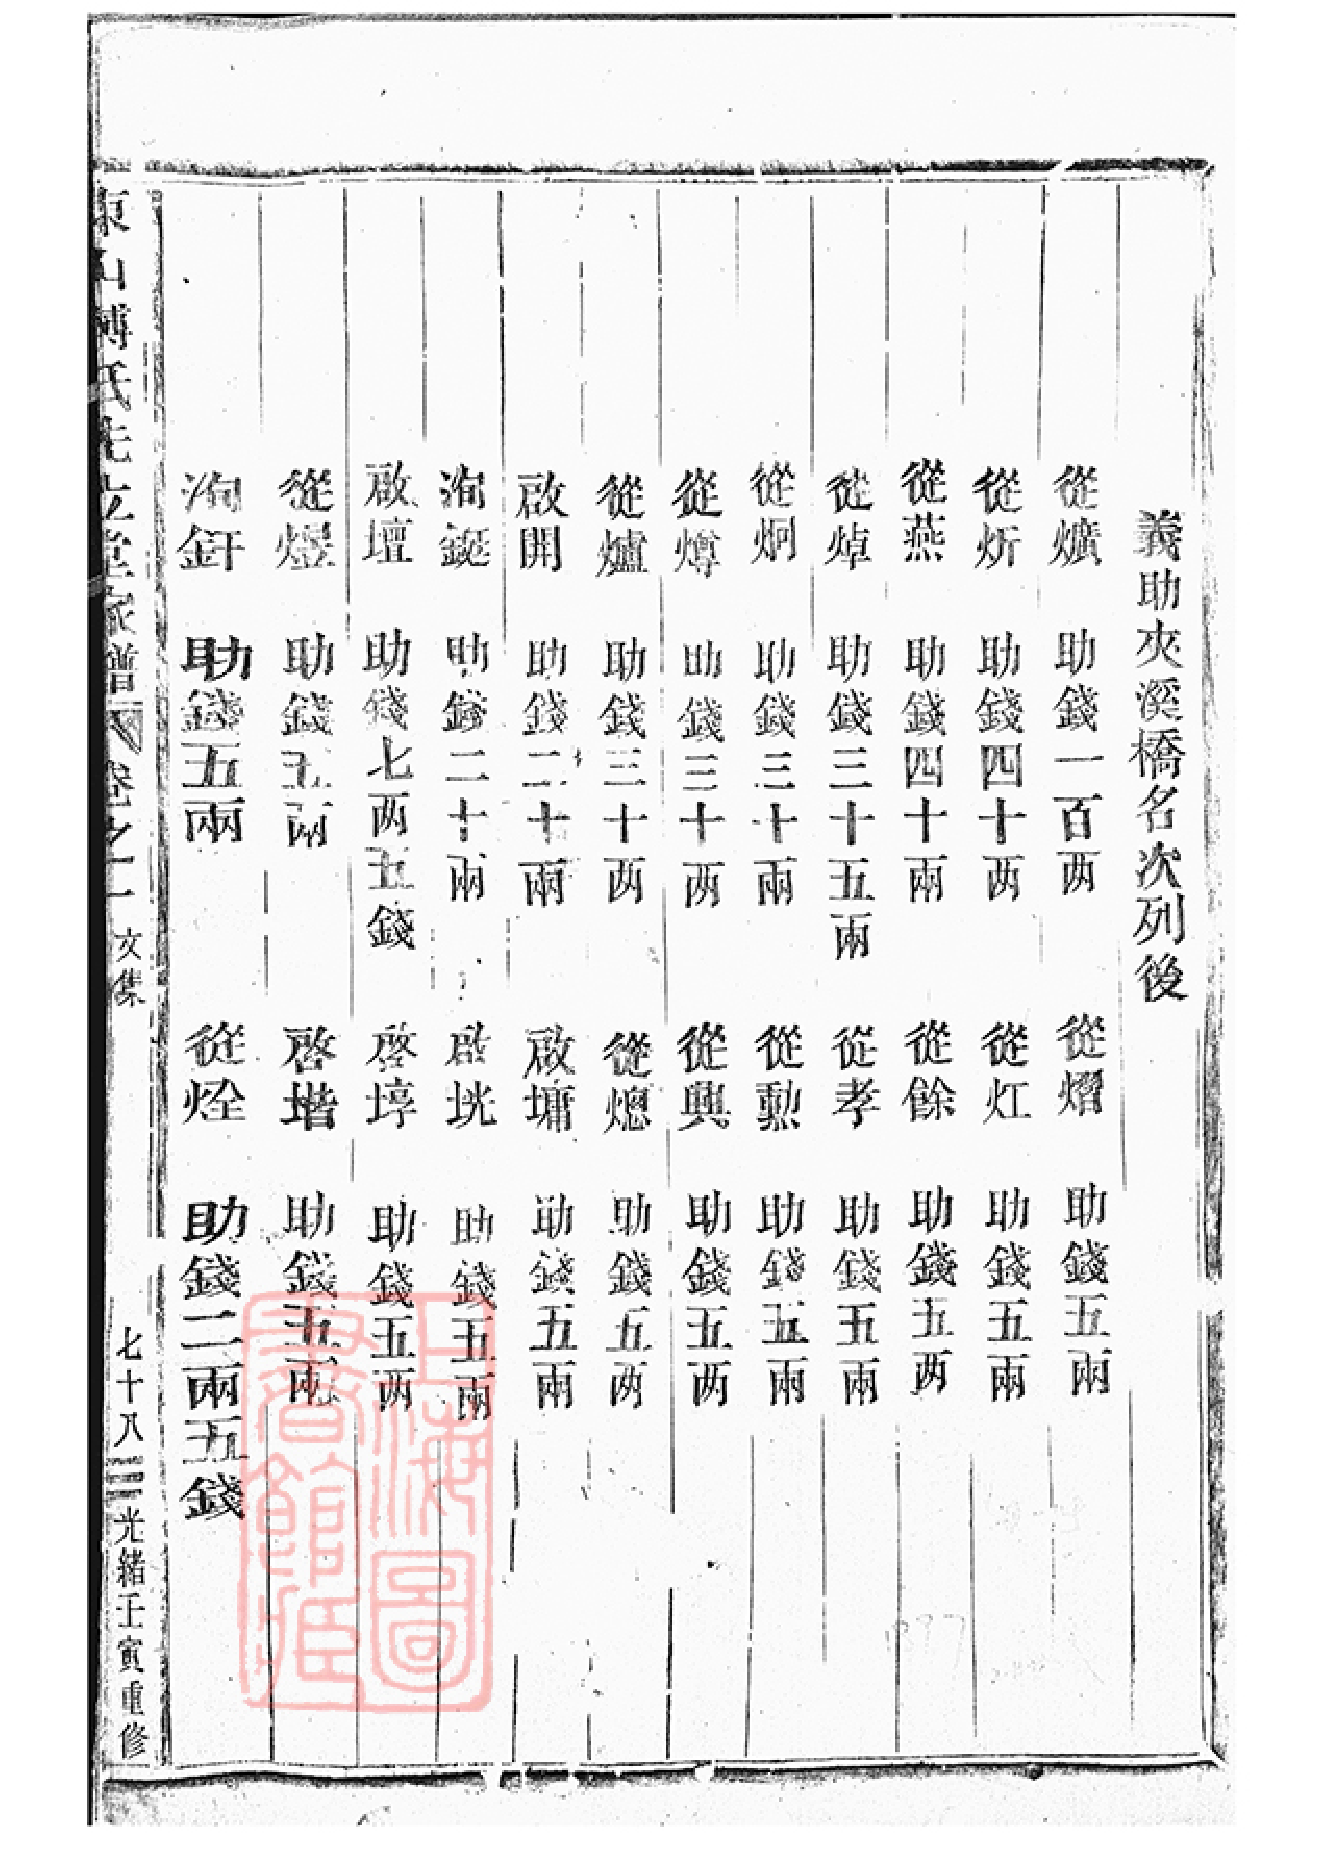 義助夾溪橋名次列後
從爌 助錢一百两 從熠 助錢五兩
從炘 助錢四十两 從灴 助錢五兩
從燕 助錢四十兩 從餘 助錢五两
從焯 助錢三十五兩 從孝 助錢五兩
從炯 助錢三十兩 從勲 助錢五兩
從燇 助錢三十两 從興 助錢五两
從爐 助錢三十两 從熜 助錢五两
啟開 助錢二十兩 啟墉 助錢五兩
洵鋌 助錢二十兩 啟垙 助錢五兩
啟壇 助錢七两五錢 啓埻 助錢五两
從煜 助錢五兩 啓堦 助錢五兩
洵釬 助錢五兩 從烇 助錢二兩五錢
東山傅氏先立堂家譜 卷之十一 文集 七十八 光緒壬寅重修
上海圖書館藏